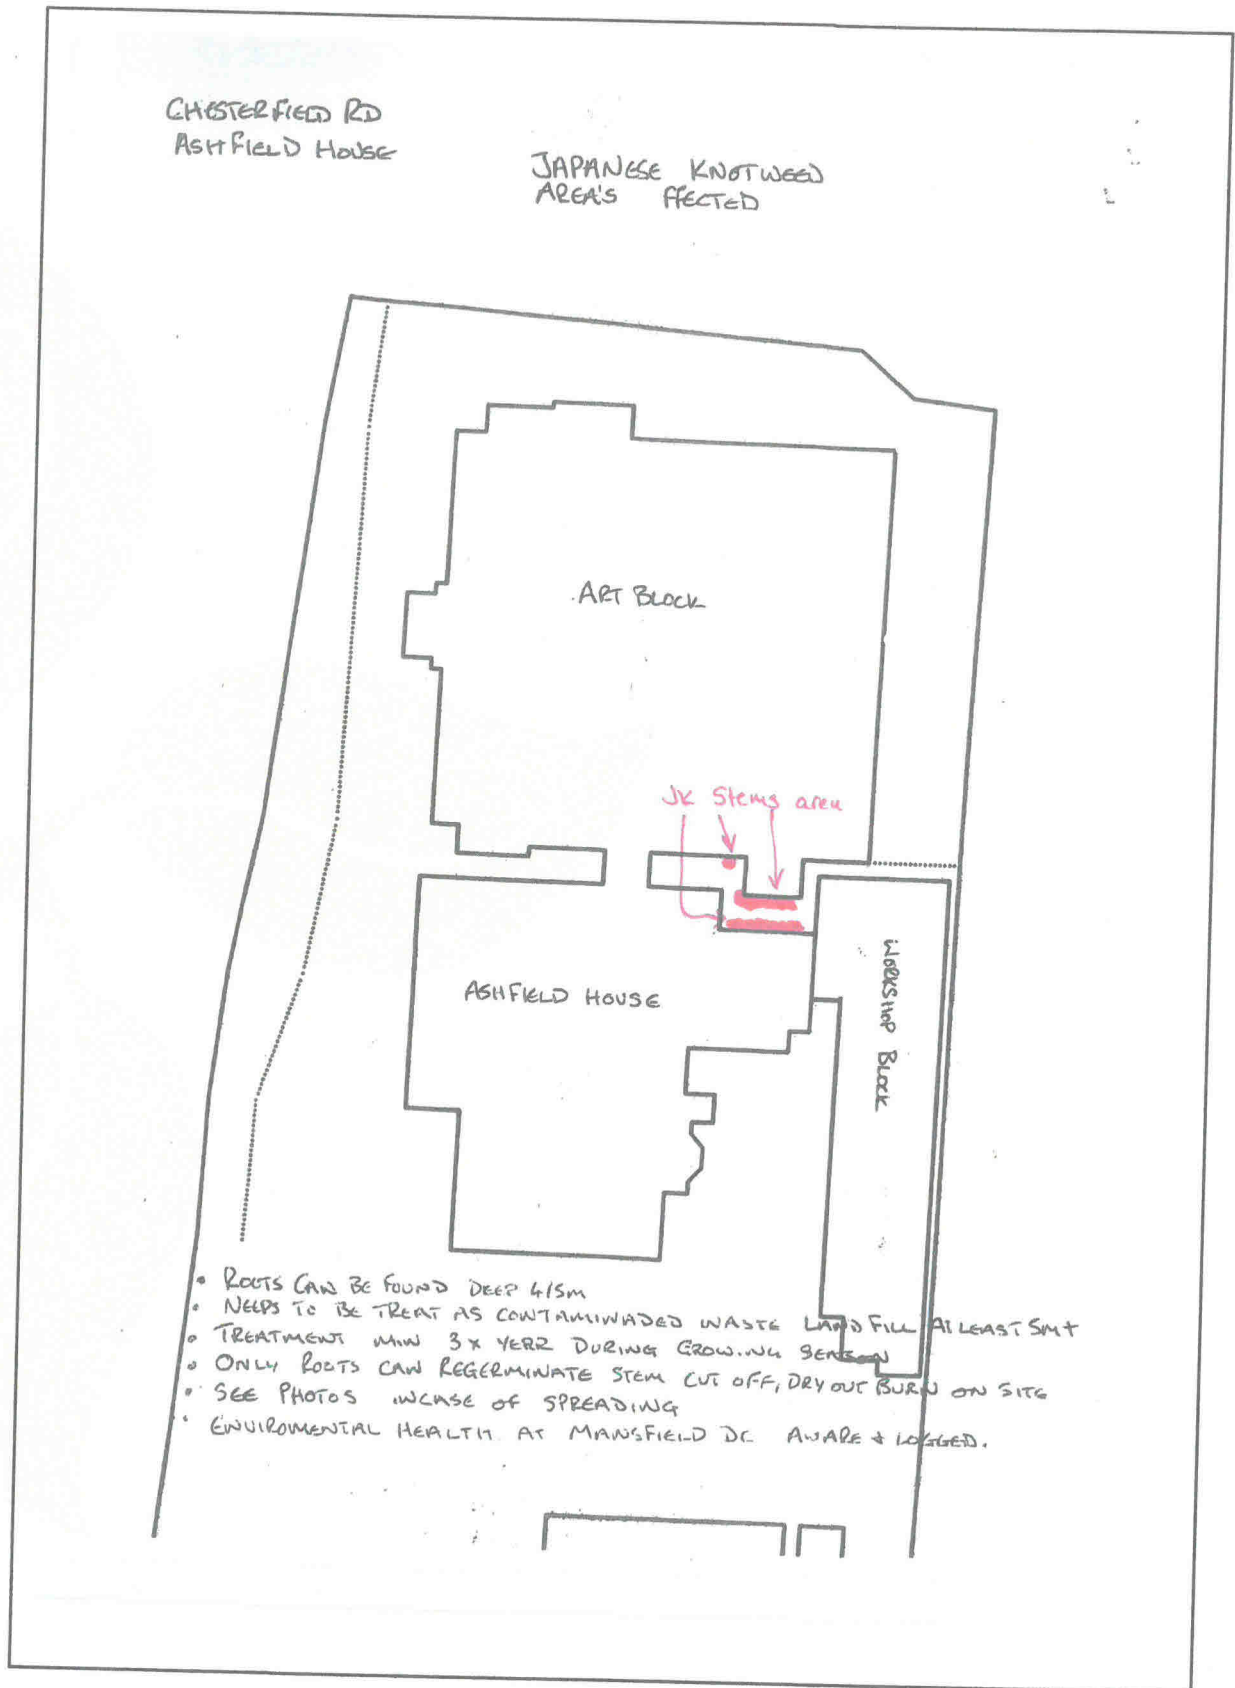 CHESTERFIELD RD
ASHFIELD HOUSE
JAPANESE KNOTWEED
AREA'S FFECTED
ART BLOCK
JK Stems area
ASHFIELD HOUSE
WORKSHOP BLOCK
• ROOTS CAN BE FOUND DEEP 4/5M
• NEEDS TO BE TREAT AS CONTAMINADED WASTE LAND FILL AT LEAST 5M+
• TREATMENT MIN 3X YERR DURING GROWING SEASON
• ONLY ROOTS CAN REGERMINATE STEM CUT OFF, DRY OUT BURN ON SITE
• SEE PHOTOS INCASE OF SPREADING
• ENVIROMENTAL HEALTH AT MANSFIELD DC AWARE & LOGGED.